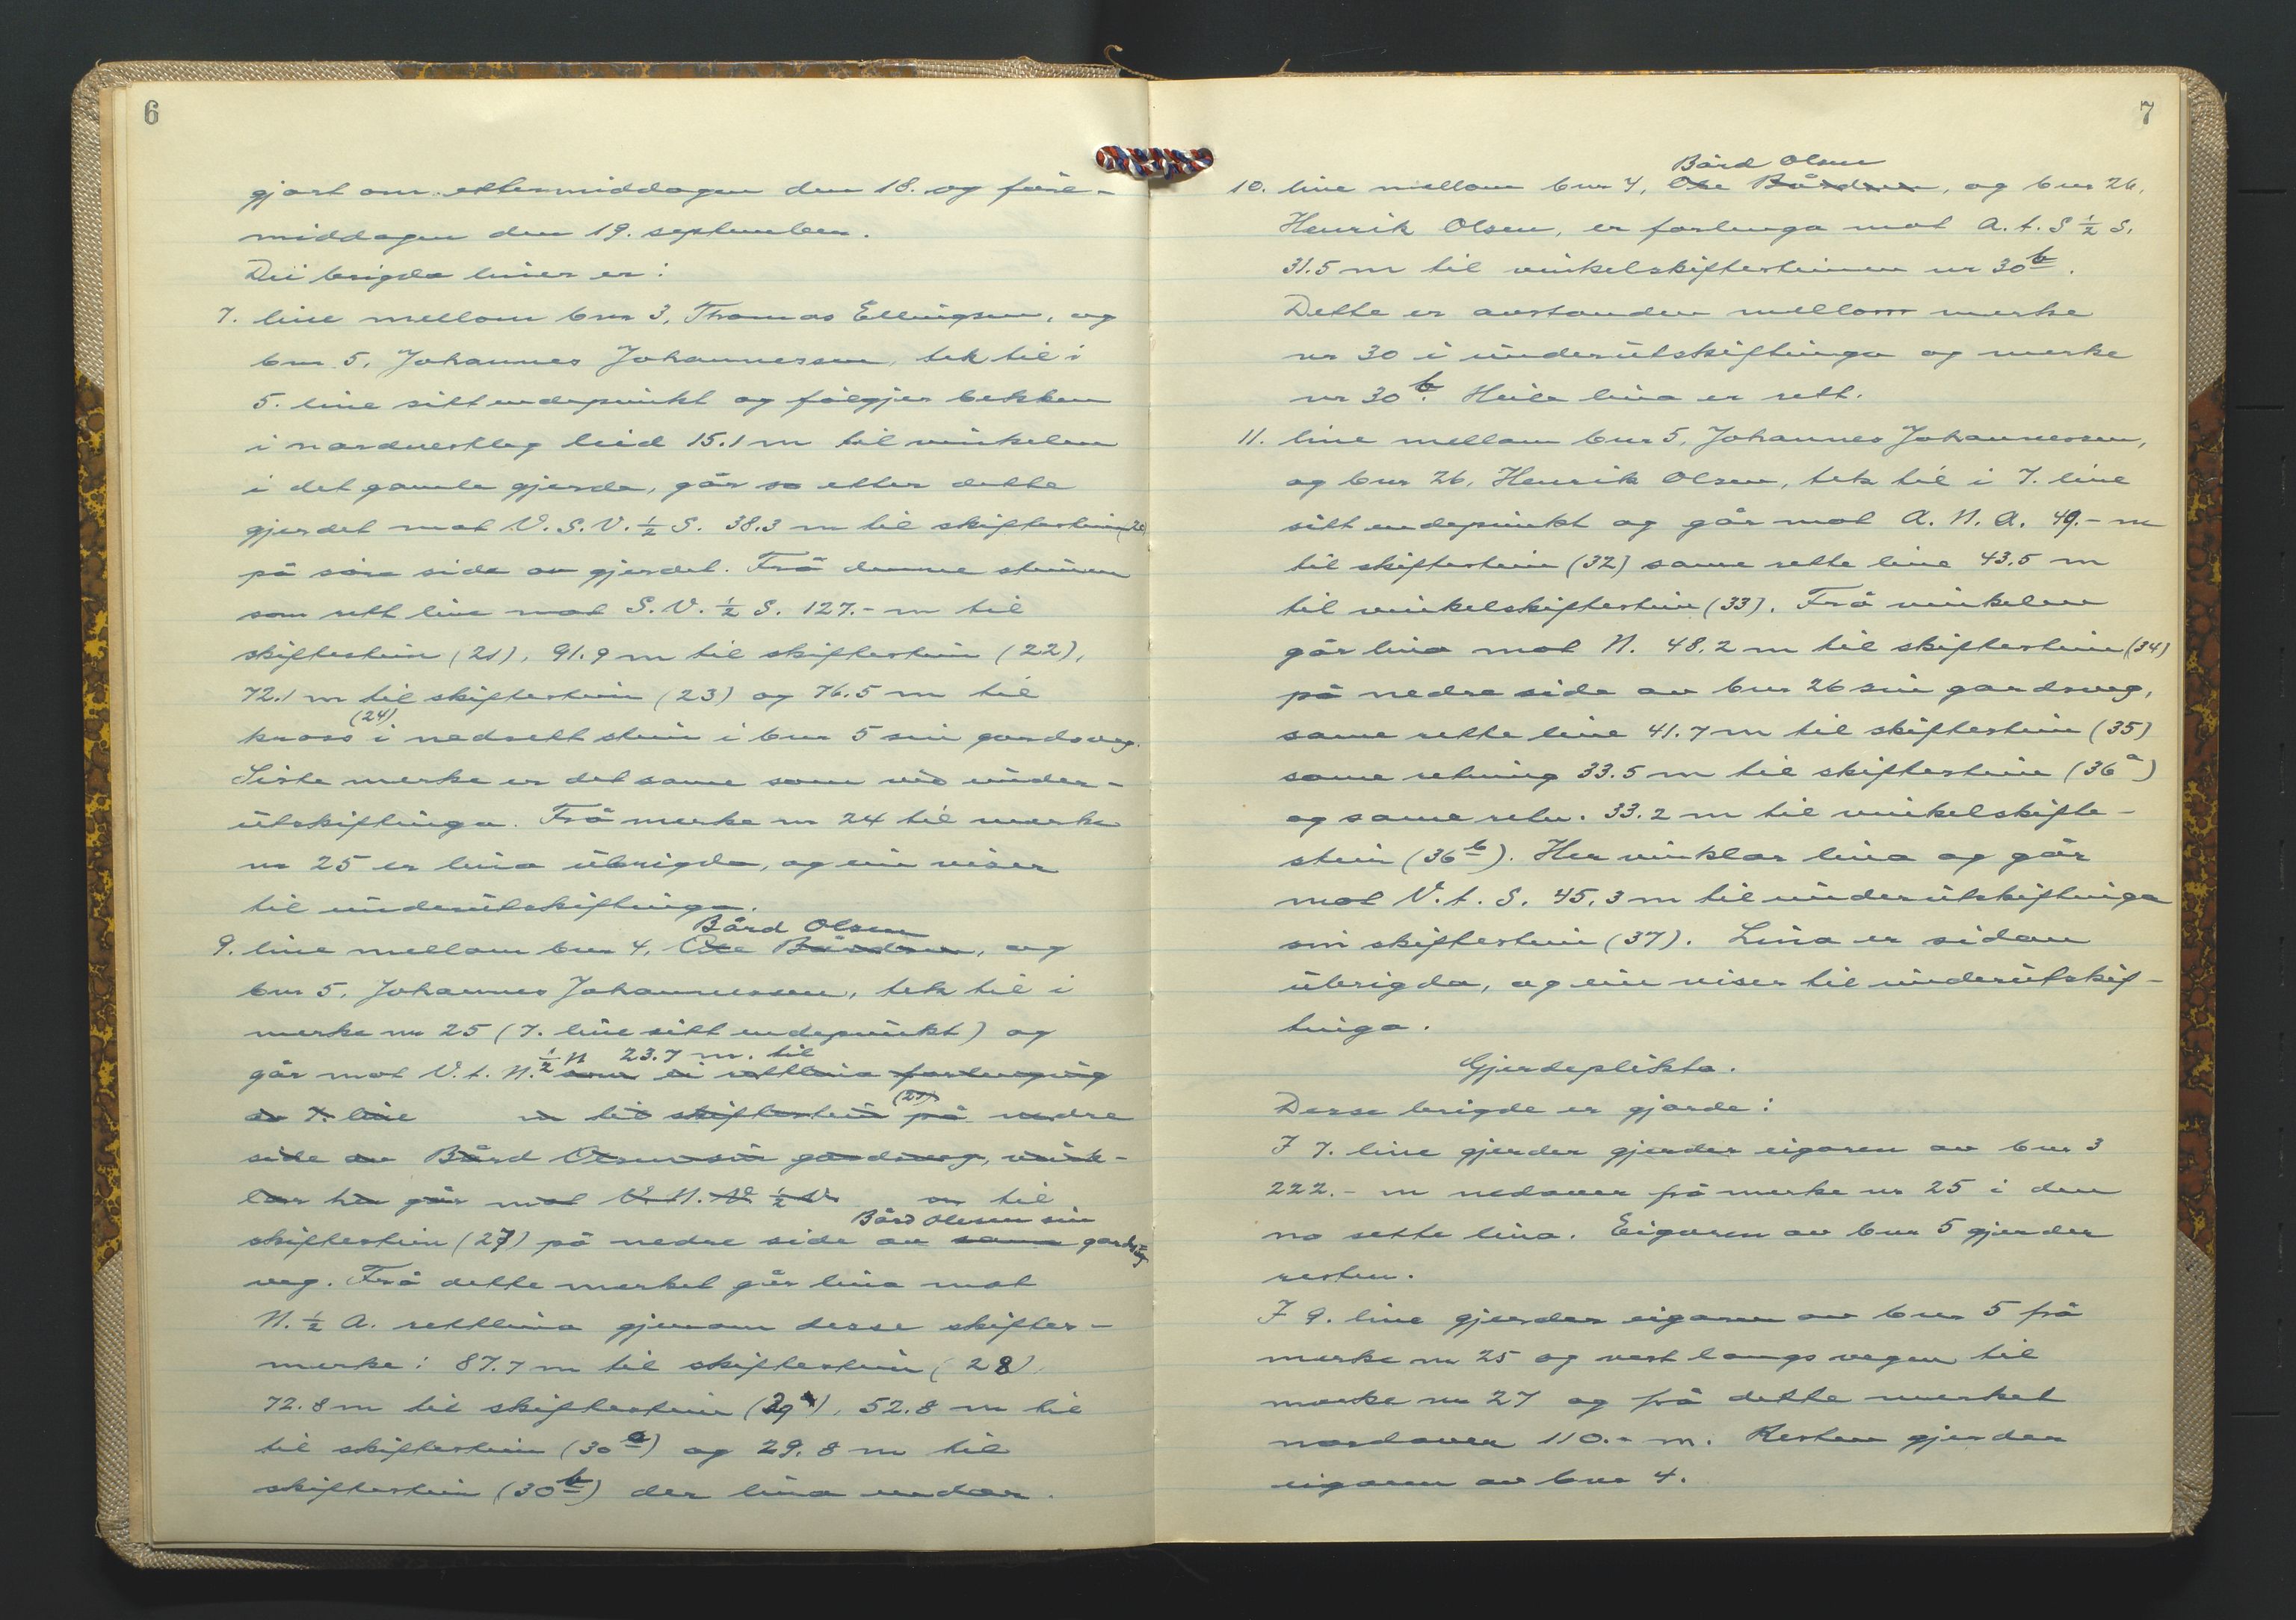 6
gjort om ettermiddagen den 18. og före-
middagen den 19. september.
Dei brigda liner er:
7. line mellom bnr 3, Thomas Ellingsen, og
bnr 5, Johannes Johannessen, tek til i
5. line sitt endepunkt og fölgjer bekken
i nordvestleg leid 15.1 m til vinkelen
i det gamle gjerde, går so etter dette
gjerdet mot V.S.V. ½ S. 38.3 m til skiftestein (20)
på söre side av gjerdet. Frå denne steinen
som rett line mot S.V. ½ S. 127.- m til
skiftestein (21), 91.9 m til skiftestein (22),
72.1 m til skiftestein (23) og 76.5 m til
kross (24) i nedsett stein i bnr 5 sin gardsveg.
Siste merke er det same som vid under-
utskiftinga. Frå merke nr 24 til merke
nr 25 er lina ubrigda, og ein viser
til underutskiftinga.
Bård Olsen
9. line mellom bnr 4, Ole Bårdsen, og
bnr 5, Johannes Johannessen, tek til i
merke nr 25 (7. line sitt endepunkt) og
½ N 23.7 m. til
går mot V.t.N. som ei rettlina forlenging
av 7. line m til skiftestein (27) på nedre
side av Bård Olsen sin gardsveg, vink-
lar her går mot V.N.V ½ V m til
Bård Olsen sin
skiftestein (27) på nedre side av same gards-
veg. Frå dette merket går lina mot
N. ½ A. rettlina gjenom desse skifte-
merke: 87.7 m til skiftestein (28),
72.8 m til skiftestein (29), 52.8 m til
til skiftestein (30 a) og 29.8 m til
skiftestein (30 b) der lina endar.
7
Bård Olsen
10. line mellom bnr 4, Ole Bårdsen, og bnr 26,
Henrik Olsen, er forlenga mot A.t.S ½ S.
31.5 m til vinkelskiftesteinen nr 30 b.
Dette er avstanden mellom merke
nr 30 i underutskiftinga og merke
nr 30 b. Heile lina er rett.
11. line mellom bnr 5, Johannes Johannessen,
og bnr 26, Henrik Olsen, tek til i 7. line
sitt endepunkt og går mot A.N.A. 49.- m
til skiftestein (32) same rette line 43.5 m
til vinkelskiftestein (33). Frå vinkelen
går lina mot N. 48.2 m til skiftestein (34)
på nedre side av bnr 26 sin gardsveg,
same rette line 41.7 m til skiftestein (35)
same retning 33.5 m til skiftestein (36 a)
og same retn. 33.2 m til vinkelskifte-
stein (36 b). Her vinklar lina og går
mot V.t.S. 45.3 m til underutskiftinga
sin skiftestein (37). Lina er sidan
ubrigda, og ein viser til underutskif-
tinga.
Gjerdeplikta.
Desse brigde er gjorde:
I 7. line gjerder gjerder eigaren av bnr 3
222.- m nedover frå merke nr 25 i den
no sette lina. Eigaren av bnr 5 gjerder
resten.
I 9. line gjerder eigaren av bnr 5 frå
merke nr 25 og vest langs vegen til
merke nr 27 og frå dette merket
nordover 110.- m. Resten gjerder
eigaren av bnr 4.